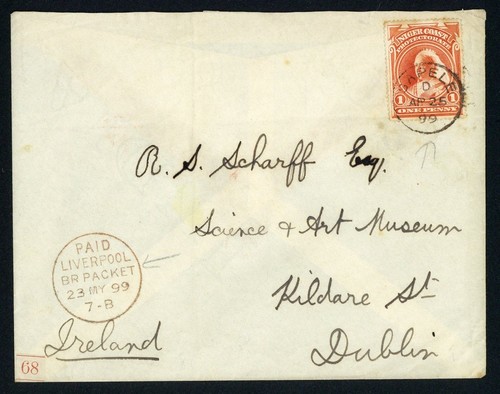 NIGER COAST
PROTECTORATE
1 ONE PENNY 1
SAPELE
D
AP 25
99
R. S. Scharff Esq.
Science & Art Museum
Kildare St
Dublin
Ireland
PAID
LIVERPOOL
BR PACKET
23 MY 99
7-B
68